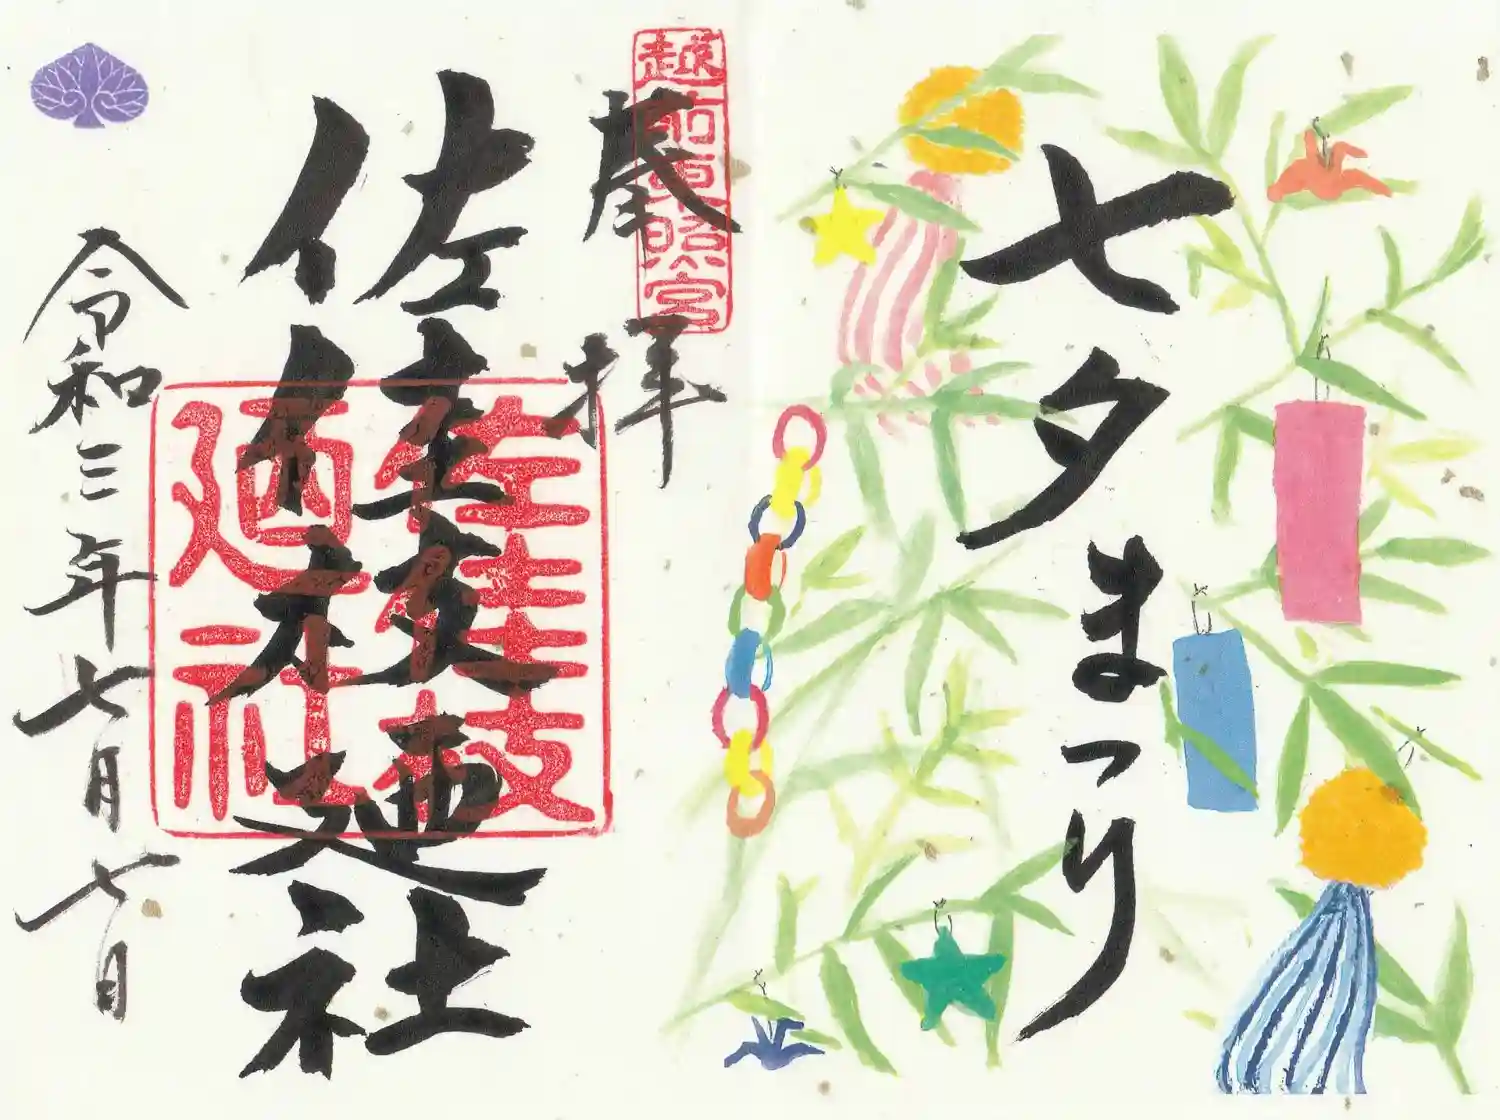 七夕まつり
越前東照宮
奉拝
佐佳枝廼社
佐佳枝
廼社
令和三年七月七日